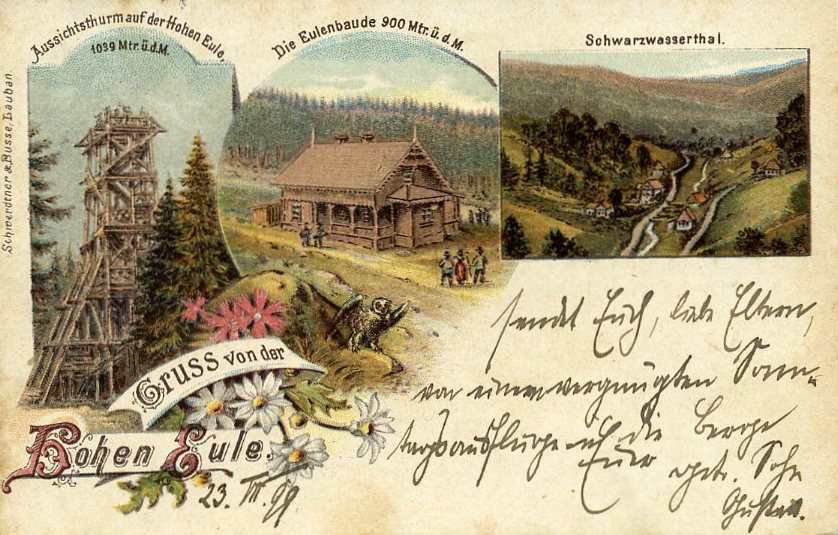 Aussichtsthurm auf der Hohen Eule,
1039 Mtr. ü.d.M.
Die Eulenbaude 900 Mtr. ü.d.M.
Schwarzwasserthal.
Schwerdtner & Busse, Lauban.
Gruss von der
Hohen Eule.
sendet Euch, liebe Eltern,
von einem vergnügten Sonn-
tagsausfluge in die Berge
Euer geh. Sohn
Gustav.
23. III. 99